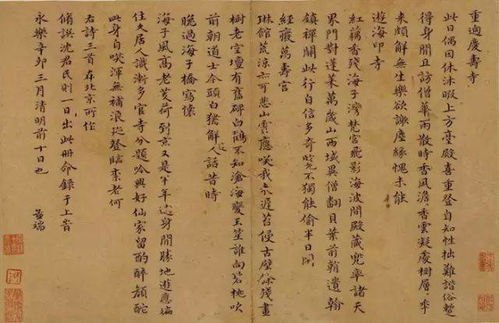 重過慶壽寺
此日偶因休沐暇上方臺殿喜重登自知性拙難諧俗暫
得身閒且訪僧華雨散時香風澹香雲凝處樹層層李
來頗解無生樂欲謝塵緣愧未能
遊海印寺
紅藕香殘海子灣梵宮飛影海波間殿藏兜率諸天
界門對蓬萊萬歲山西域異僧翻貝葉前朝遺翰
鎮禪關此行自信多奇晚不獨能偷半日閒
經廢萬壽宮
琳館荒涼亦可悲山黃應笑我來遲苔侵古壁餘殘畫
樹老空壇有舊碑白鶴不知滄海變玉笙誰向碧桃吹
前朝道士今頭白猶解人話昔時
晚過海子橋寓懷
海子風高老芰荷到京又是半年過身閒勝地遊應徧
住久居人識漸多官寺分題吟興好仙家留酌醉顏酡
此身自咲渾無補浪跡登臨柰老何
右詩三首在北京所作
脩撰沈君民則一日出此冊命錄于上旹
永樂辛卯三月清明前十日也
孟端